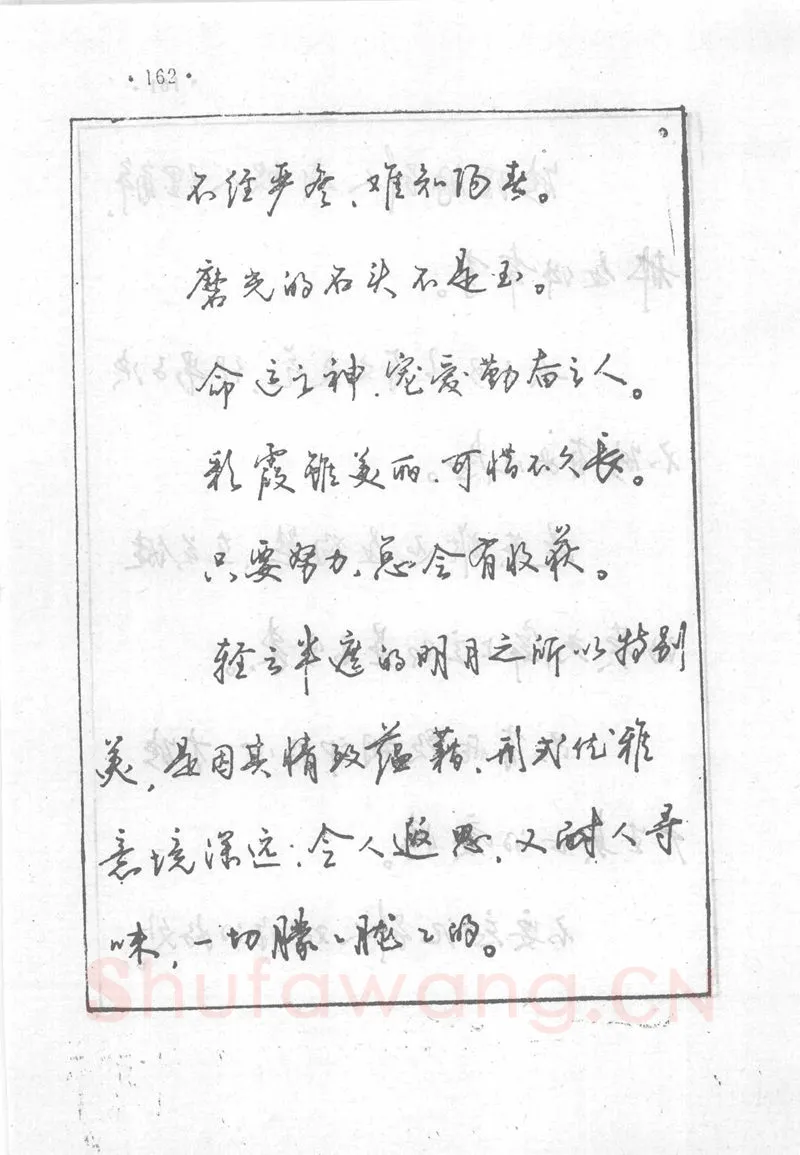 ·162·
不经严冬、难知阳春。
磨光的石头不是玉。
命运之神、宠爱勤奋之人。
彩霞虽美丽、可惜不久长。
只要努力、总会有收获。
轻云半遮的明月之所以特别
美，是因其情致蕴藉、形式优雅
意境深远、令人遐思、又耐人寻
味，一切朦〻胧〻的。
Shufawang.CN